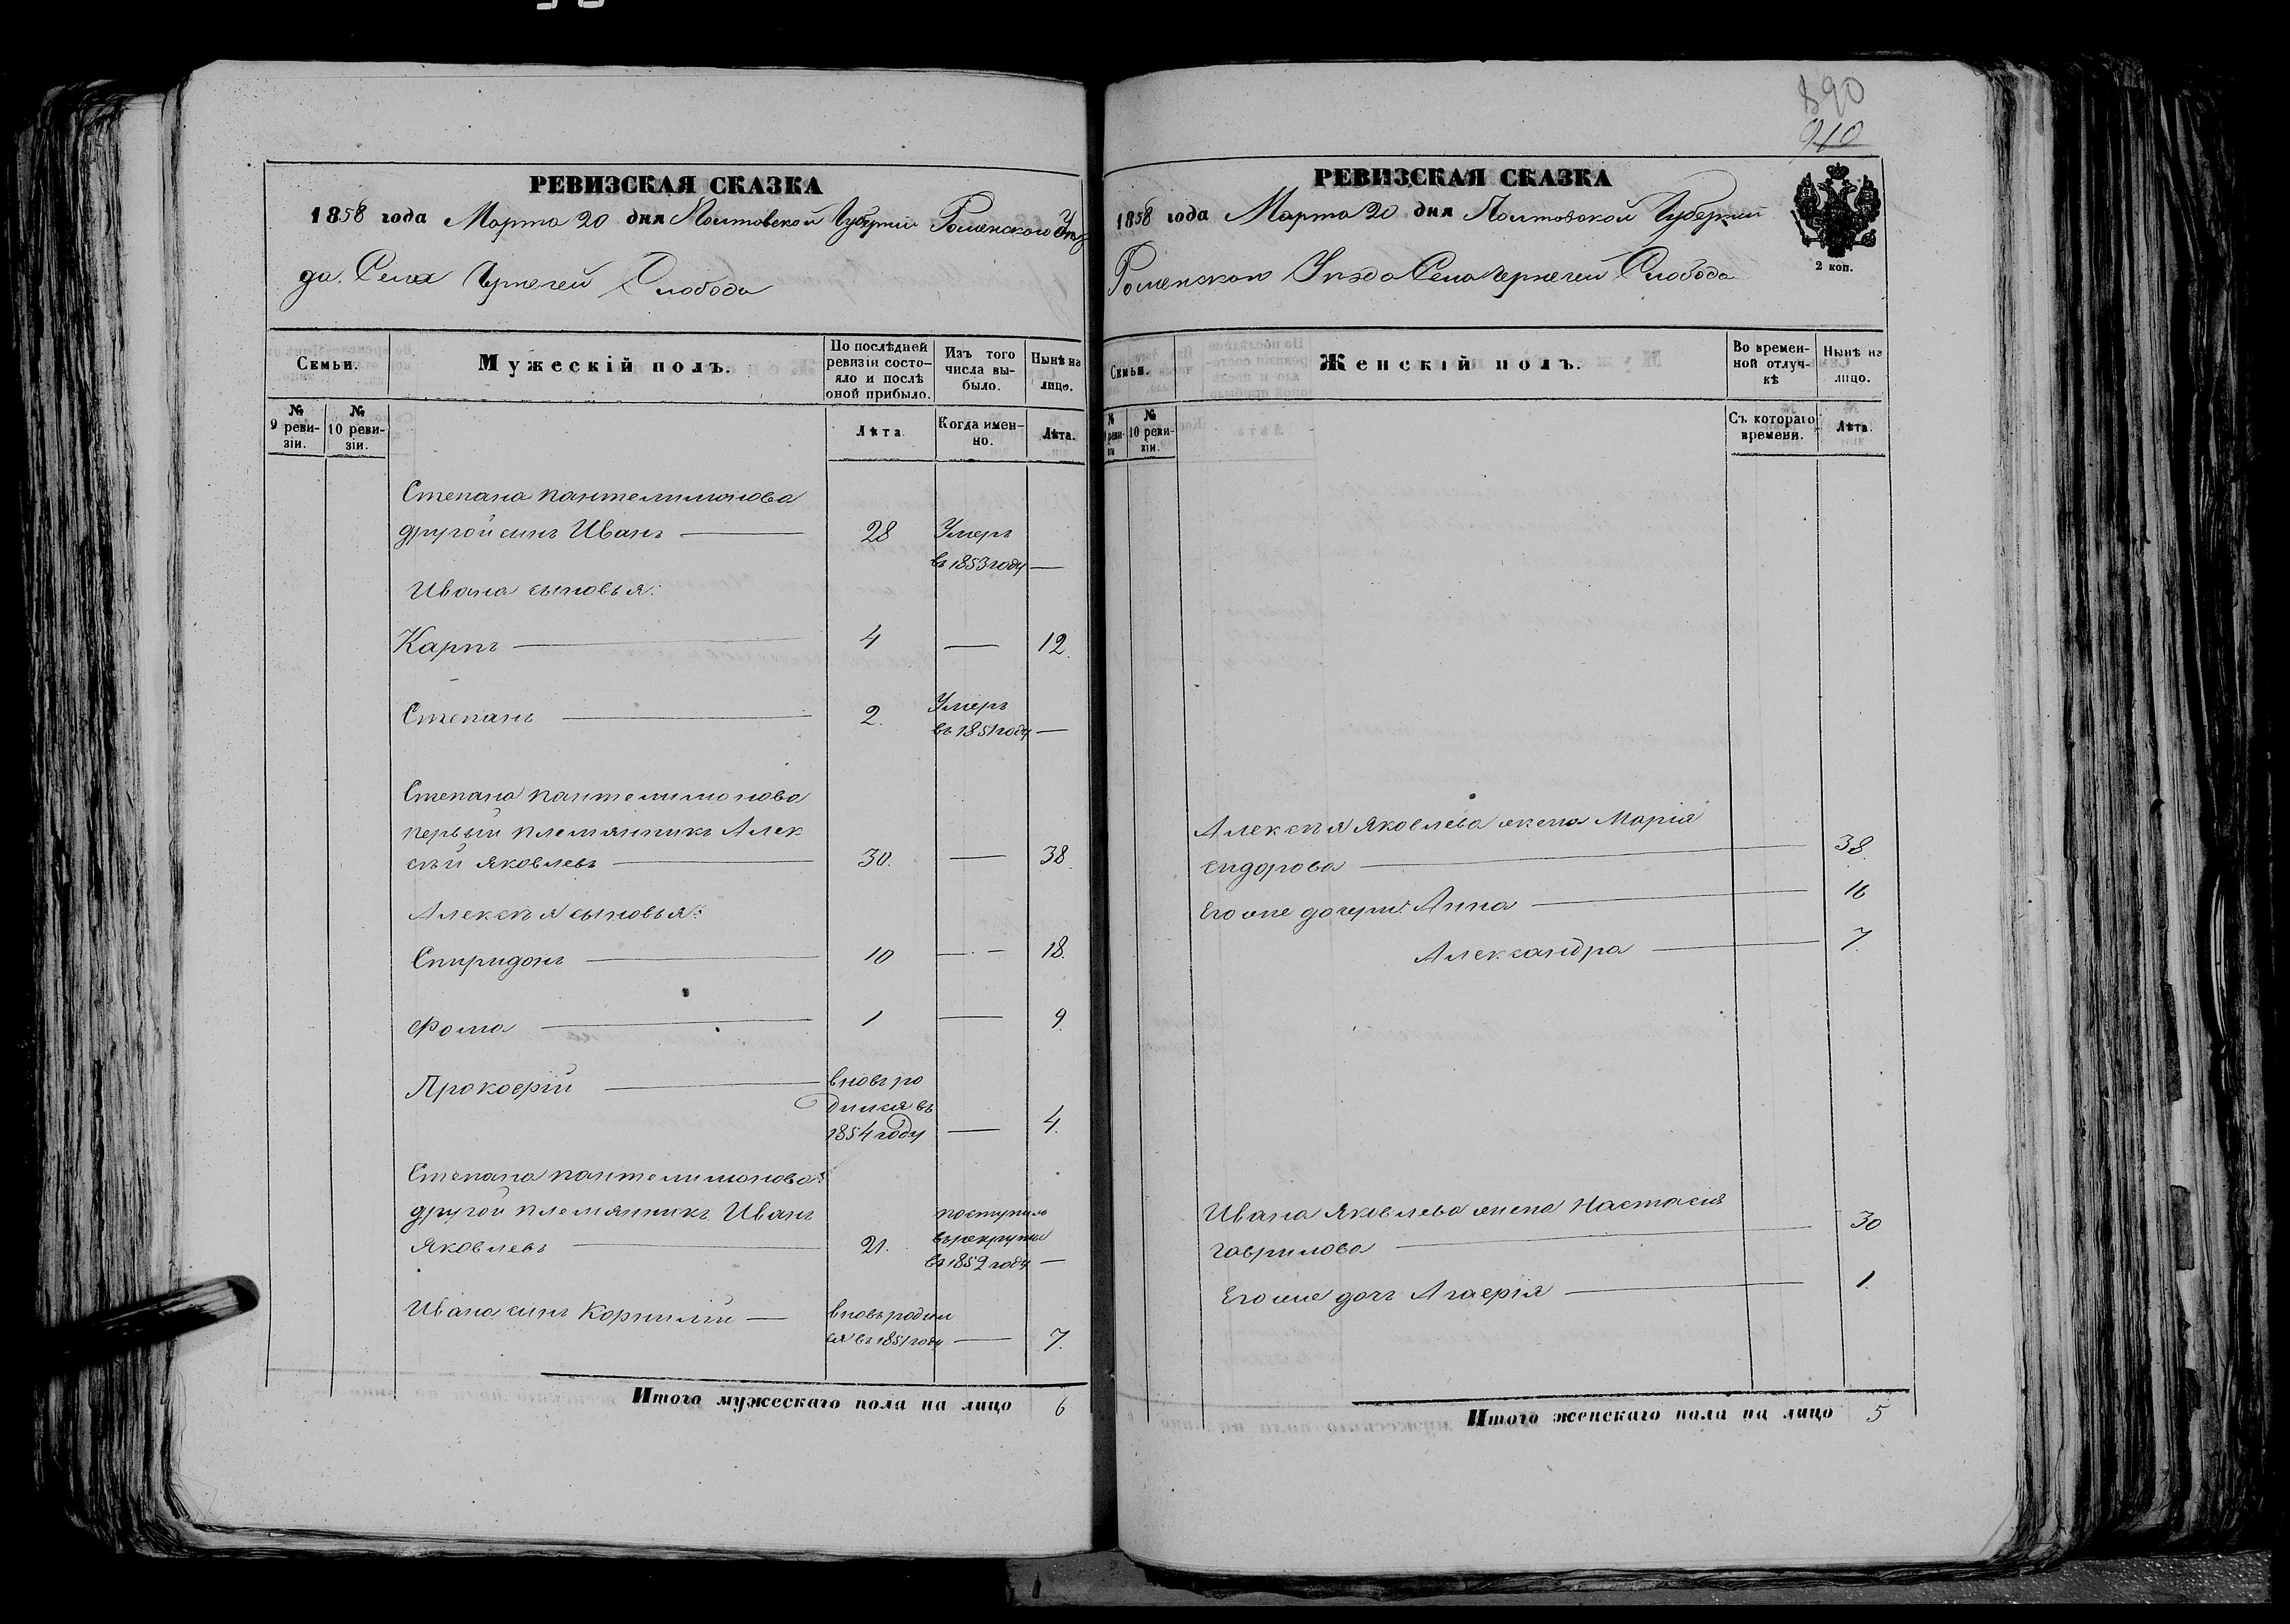 890
910
РЕВИЗСКАЯ СКАЗКА
1858 года Марта 20 дня Полтовской Губернии Роменского Уѣз
да. Села Чернечей Слобода
Семьи.
Мужескій полъ.
По послѣдней
ревизіи состо-
яло и послѣ
оной прибыло.
Изъ того
числа вы-
было.
Нынѣ на
лицо.
№
9 реви-
зіи.
№
10 реви-
зіи.
Лѣта
Когда имен-
но.
Лѣта.
Степана пантелимонова
другой синъ Иванъ 28 Умеръ
въ 1853 году
Ивана сыновья:
Карпъ 4 12.
Степанъ 2. Умеръ
въ 1851 году
Степана пантелимонова
первый племянникъ Алек
сѣй Яковлевъ 30. 38.
Алексѣя сыновья:
Спиридонъ 10 18.
Фома 1 9.
Прокофій вновь ро
дился въ
1854 году 4.
Степана пантелимонова
другой племянникъ Иванъ поступилъ
Яковлевъ 21. въ рекруты
въ 1852 году
Ивана синъ Корнилій вновь родил
ся въ 1851 году 7.
Итого мужескаго пола на лицо 6
РЕВИЗСКАЯ СКАЗКА
1858 года Марта 20 дня Полтовской Губернии
Роменского Уѣзда Села Чернечей Слобода
2 коп.
Семьи.
Женскій полъ.
Во времен-
ной отлуч-
кѣ
Нынѣ на
лицо.
№
9 реви-
зіи
№
10 реви-
зіи.
Съ котораго
времени.
Лѣта.
Алексѣя Яковлева жена Марія
сидорова 38.
Его же дочери: Анна 16
Александра 7.
Ивана Яковлева жена Настасия
гаврилова 30
Его же дочъ Агафія 1.
Итого женскаго пола на лицо 5